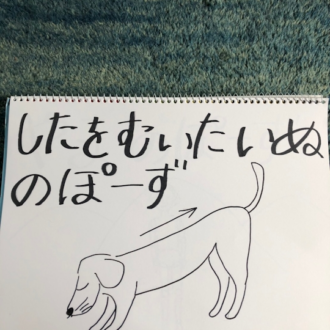 したをむいたいぬ
のぽーず